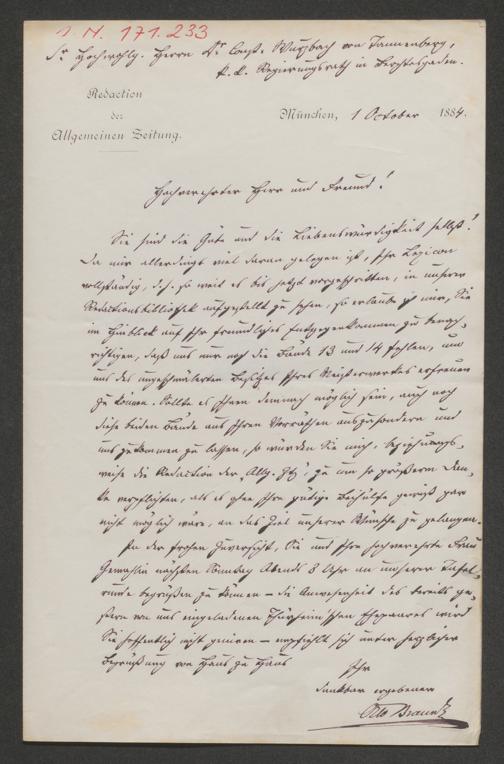 I. N. 171.233
Sr Hochwohlg. Herrn Dr Const. Wurzbach von Tannenberg,
k. k. Regierungsrath in Berchtesgaden.
Redaction
der
Allgemeinen Zeitung.
München, 1 October 1884.
Hochverehrter Herr und Freund!
Sie sind die Güte und die Liebenswürdigkeit selbst!
Da mir allerdings viel daran gelegen ist, Ihr Lexicon
vollständig, d. h. so weit es bis jetzt vorgeschritten, in unserer
Redactionsbibliothek aufgestellt zu sehen, so erlaube ich mir, Sie
im Hinblick auf Ihr freundliches Entgegenkommen zu benach-
richtigen, daß uns nur noch die Bände 13 und 14 fehlen, um
uns des ungeschmälerten Besitzes Ihres Meisterwerkes erfreuen
zu können. Sollte es Ihnen demnach möglich sein, auch noch
diese beiden Bände aus Ihren Vorräthen auszusondern und
uns zukommen zu lassen, so würden Sie mich, beziehungs-
weise die Redaction der „Allg. Ztg", zu um so größerem Dan-
ke verpflichten, als es ohne Ihre gütige Beihülfe gewiß gar
nicht möglich wäre, an das Ziel unserer Wünsche zu gelangen.
In der frohen Zuversicht, Sie und Ihre hochverehrte Frau
Gemahlin nächsten Sonntag Abends 8 Uhr an unserer Tafel-
runde begrüßen zu können – die Anwesenheit des bereits ge-
stern von uns eingeladenen Thürheim'schen Ehepaares wird
Sie hoffentlich nicht geniren – empfiehlt sich unter herzlicher
Begrüßung von Haus zu Haus
Ihr
dankbar ergebener
Otto Braun